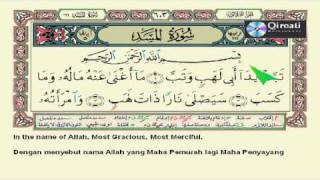 ٦٠٣
سُورَةُ المَسَدِ
بِسْمِ اللَّهِ الرَّحْمَٰنِ الرَّحِيمِ
تَبَّتْ يَدَا أَبِي لَهَبٍ وَتَبَّ مَا أَغْنَىٰ عَنْهُ مَالُهُ وَمَا
كَسَبَ سَيَصْلَىٰ نَارًا ذَاتَ لَهَبٍ وَامْرَأَتُهُ
In the name of Allah, Most Gracious, Most Merciful.
Dengan menyebut nama Allah yang Maha Pemurah lagi Maha Penyayang